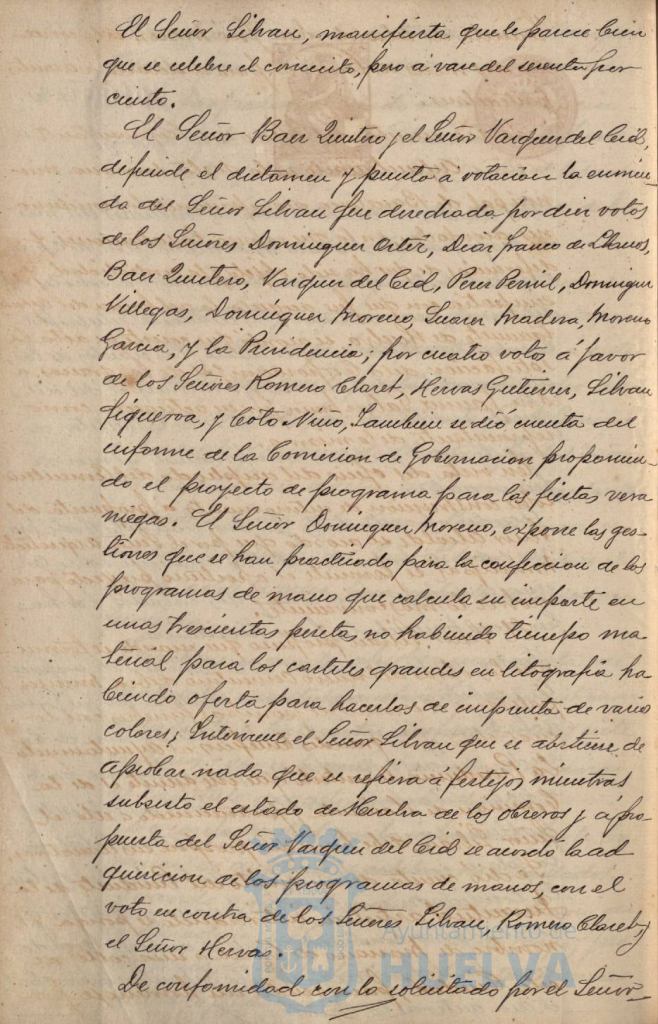 El Señor Silvan, manifiesta que le parece bien
que se celebre el concierto, pero á vase del sesenta por
ciento.
El Señor Baez Quintero y el Señor Vazquez del Cid,
defiende el dictamen y puesta á votacion la enmien-
da del Señor Silvan fue desechada por diez votos
de los Señores Dominguez Ortiz, Diaz Franco de Llanos,
Baez Quintero, Vazquez del Cid, Perez Pernil, Dominguez
Villegas, Domínguez Moreno, Suarez Madera, Moreno
Garcia, y la Presidencia; por cuatro votos á favor
de los Señores Romero Claret, Hervas Gutierrez, Silvan
Figueroa, y Coto Niño, Tambien se dió cuenta del
informe de la Comision de Gobernacion proponien-
do el proyecto de programa para las fiestas vera
niegas. El Señor Dominguez Moreno, expone las ges-
tiones que se han practicado para la confeccion de los
programas de mano que calcula su importe en
unas trescientas pesetas no habiendo tiempo ma-
terial para los carteles grandes en litografía ha-
biendo oferta para hacerlos de imprenta de varios
colores; Interviene el Señor Silvan que se abstiene de
aprobar nada que se refiera á festejos mientras
subsista el estado de Huelva de los obreros y á pro-
puesta del Señor Vazquez del Cid se acordó la ad
quisicion de los programas de manos, con el
voto en contra de los Señores Silvan, Romero Claret y
el Señor Hervas.
De conformidad con lo solicitado por el Señor
Ayuntamiento de
HUELVA